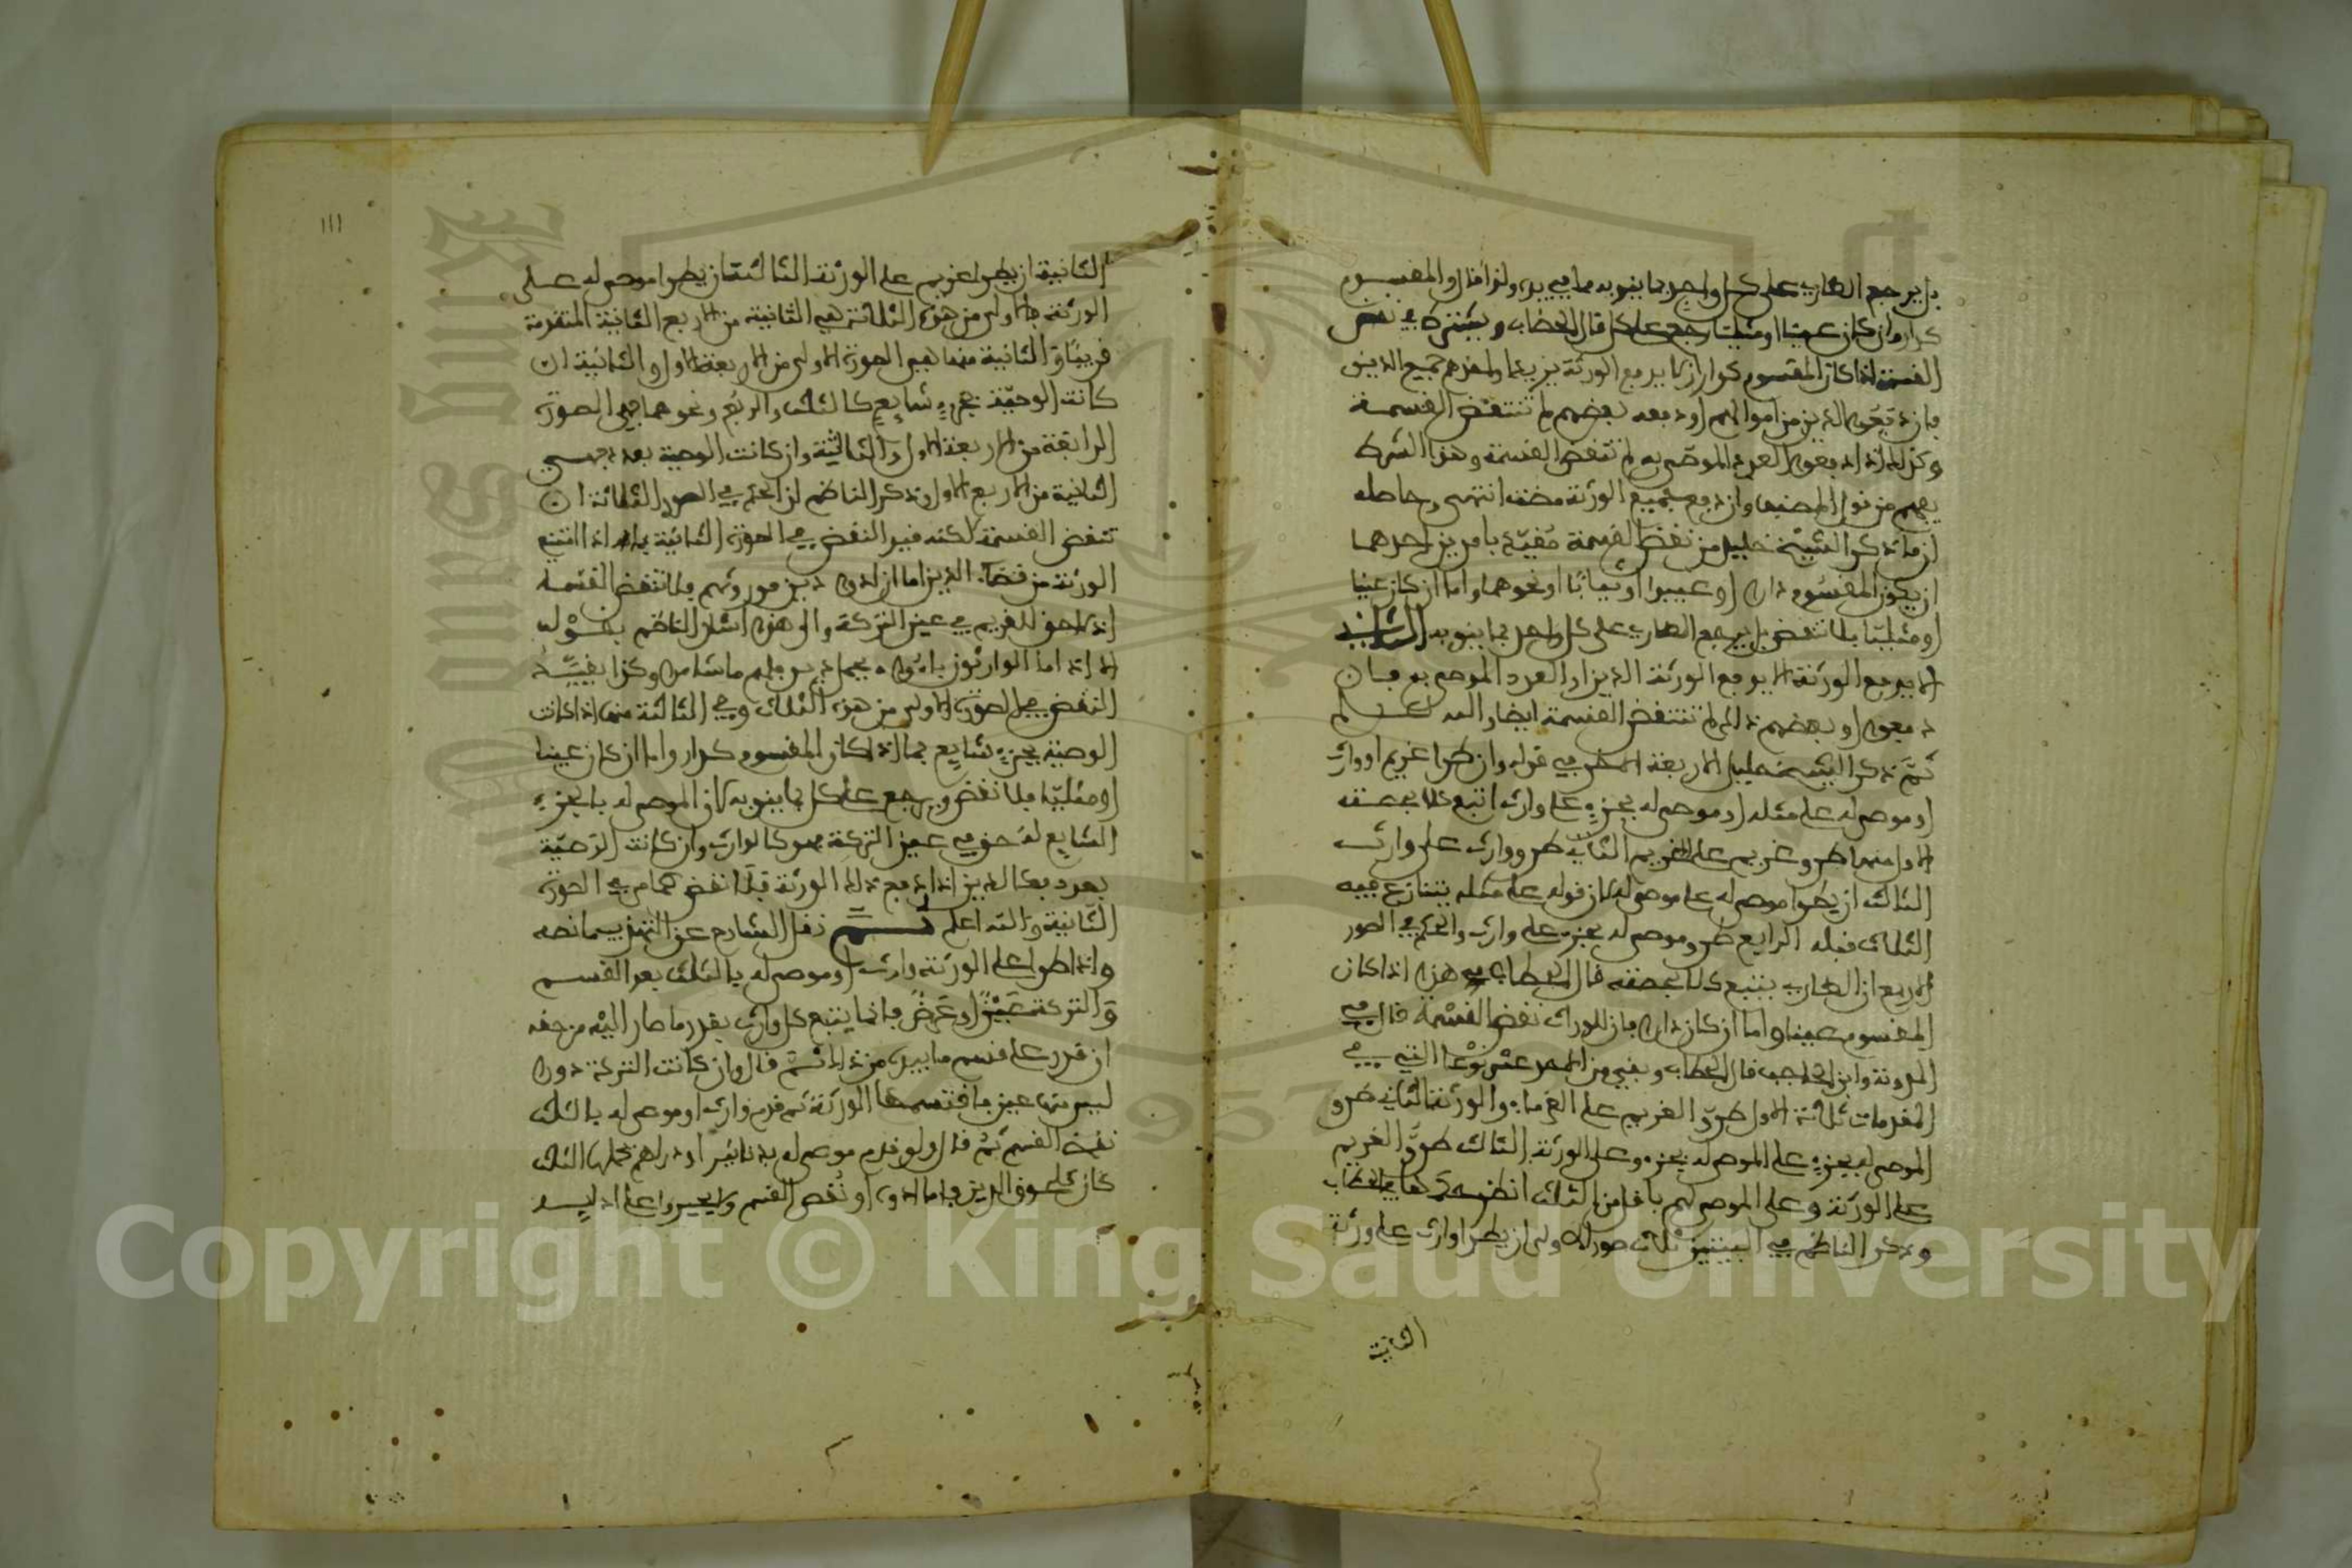 بل يرجع الطاري على كل واحد بما ينوبه مما في يده ولذا قال والمقسوم
كدار وان كان عينا او مثليا رجع على كل قال الحطاب ويشترط في نقض
القسمة اذا كان المقسوم كدار ان لا يدفع الورثة يريد ما ولهم جميع الدين
فان دفعوه الدين من اموالهم او دفعه بعضهم لم تنتقض القسمة
وكذلك اذا دفعوا العدد الموصى به لم تنتقض القسمة وهذا الشرط
يفهم من قول المصنف وان دفع جميع الورثة مضت انتهى وحاصله
ان ما ذكر الشيخ خليل من نقض القسمة مقيد بامرين احدهما
ان يكون المقسوم دارا او عبيدا او ثيابا او نحوها واما ان كان عينا
او مثليا فلا تنقض بل يرجع الطاري على كل واحد بما ينوبه الثاني
الا يدفع الورثة الدين او العدد الموصى به فان
دفعوه او بعضهم ذلك لم تنتقض القسمة ايضا والله اعلم
ثم ذكر الشيخ خليل الاربعة الاخر في قوله وان طرا غريم او وارث
او موصى له على مثله او موصى له بجزء على وارث اتبع كلا بحصته
الاول منها طرو غريم على الغريم الثاني طرو وارث على وارث
الثالث ان يطرا موصى له على موصى له لان قوله على مثله يتنازع فيه
الثلاث قبله الرابع طرو موصى له بجزء على وارث والحكم في الصور
الاربع ان الطاري يتبع كلا بحصته قال الحطاب هذا اذا كان
المقسوم عينا واما ان كان دارا فان للوارث نقض القسمة قال في
المدونة وابن الحاجب قال الحطاب وبقي من الاحد عشر نوعا التي في
المقدمات ثلاثة الاول طرو الغريم على الغرماء والورثة الثاني طرو
الموصى له بجزء على الموصى له بجزء وعلى الورثة الثالث طرو الغريم
على الورثة وعلى الموصى لهم باقل من الثلث انظر الحطاب
وذكر الناظم في البيتين ثلاث صور الاولى ان يطرا وارث على ورثة
الثانية
١١١
الثانية ان يطرا غريم على الورثة الثالثة ان يطرا موصى له على
الورثة فالاولى من هذه الثلاثة هي الثانية من الاربع الثانية المتقدمة
قريبا والثانية منها هي الصورة الاولى من الاربعة الاول والثالثة ان
كانت الوصية بجزء شايع كالثلث والربع ونحوهما فهي الصورة
الرابعة من الاربعة الاول الثانية وان كانت الوصية بعدد فهي
الثانية من الاربع الاول وذكر الناظم ان الحكم في الصور الثلاثة ان
تنقض القسمة لكنه قيد النقض في الصورة الثانية بما اذا امتنع
الورثة من قضاء الدين اما ان ادوا دين موروثهم فلا تنقض القسمة
اذ لا حق للغريم في عين التركة والى هذا اشار الناظم بقوله
الا اذا ما الوارثون باءوا بحمل دين فلهم ما شاءوا وكذا يقيد
النقض في الصورة الاولى من هذه الثلاث وفي الثالثة منها اذا كانت
الوصية بجزء شايع بما اذا كان المقسوم كدار واما ان كان عينا
او مثليا فلا نقض ويرجع على كل بما ينوبه لان الموصى له بالجزء
الشايع له حق في عين التركة فهو كالوارث وان كانت الوصية
بعدد فكالدين اذا دفع ذلك الورثة فلا نقض كما مر في الصورة
الثانية والله اعلم ثم نقل الشارح عن التهذيب ما نصه
واذا طرا على الورثة وارث او موصى له بالثلث بعد القسم
والتركة عين او عرض فانما يتبع كل وارث بقدر ما صار اليه من حقه
ان قدر على قسم ما بيده من ذلك ثم قال وان كانت التركة دورا
ليس فيها عين فاقتسمها الورثة ثم قدم وارث او موصى له بالثلث
نقض القسم ثم قال ولو قدم موصى له بدنانير او دراهم تحملها الثلث
كان كلحوق الدين فاما ادوا او نقض القسم ولا يجبروا على ادايه